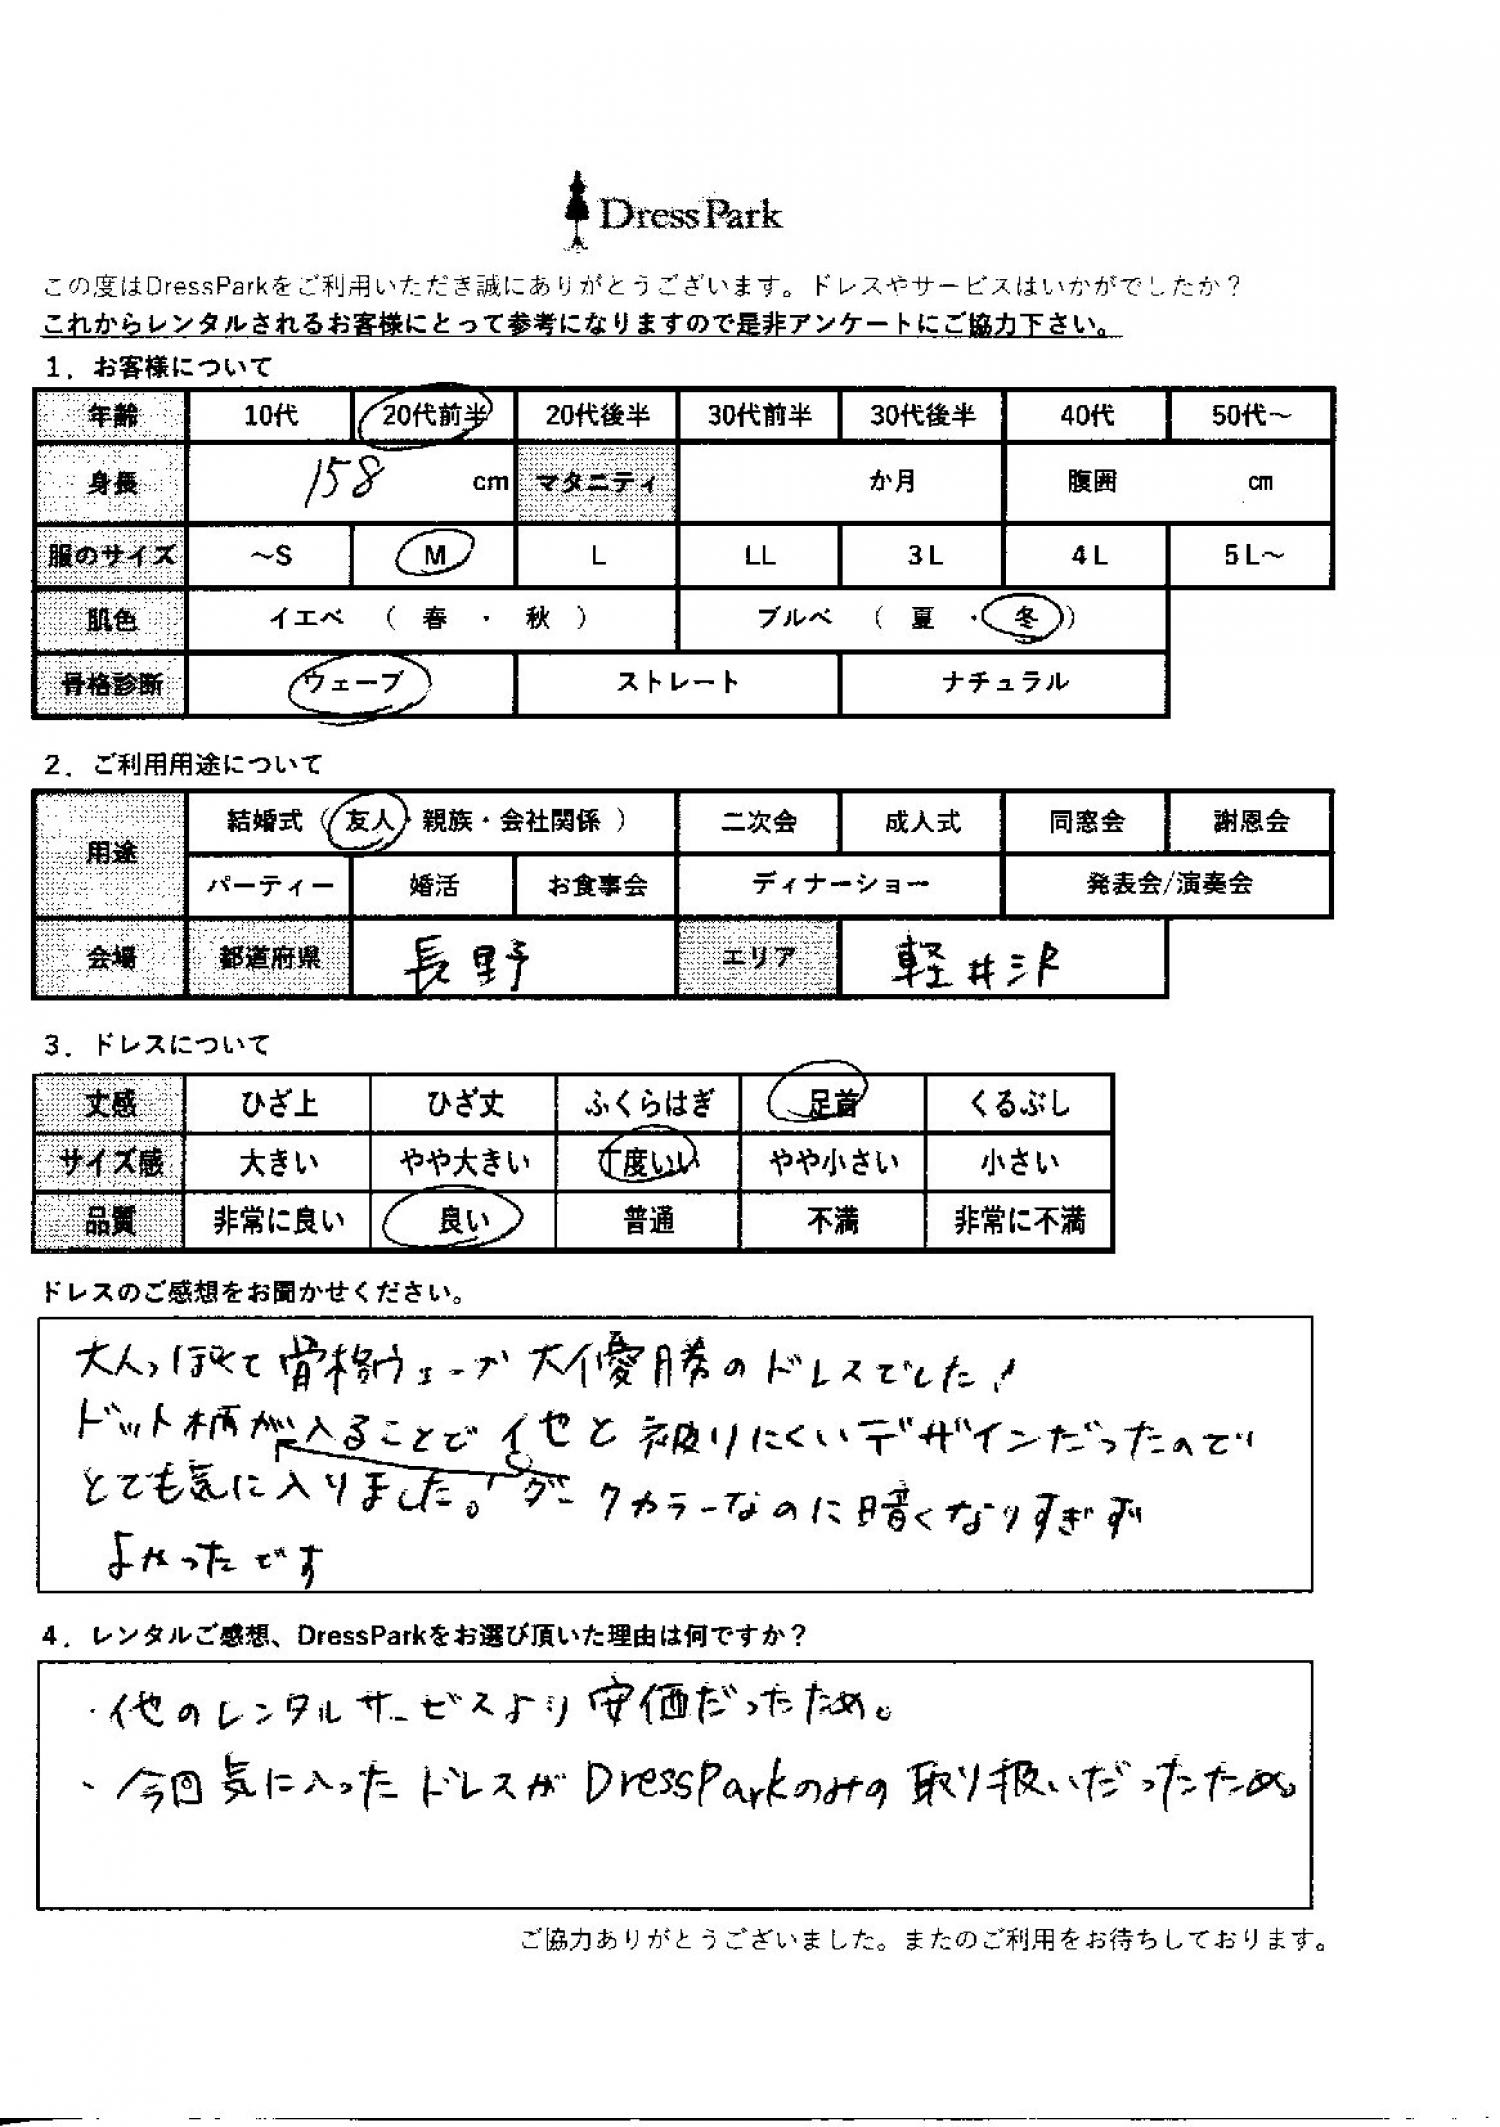 DressPark
この度はDressParkをご利用いただき誠にありがとうございます。ドレスやサービスはいかがでしたか？
これからレンタルされるお客様にとって参考になりますので是非アンケートにご協力下さい。
1．お客様について
年齢 10代 20代前半 20代後半 30代前半 30代後半 40代 50代～
身長 158 cm マタニティ か月 腹囲 cm
服のサイズ ～S M L LL 3L 4L 5L～
肌色 イエベ （ 春 ・ 秋 ） ブルベ （ 夏 ・ 冬 ）
骨格診断 ウェーブ ストレート ナチュラル
2．ご利用用途について
用途 結婚式（友人・親族・会社関係） 二次会 成人式 同窓会 謝恩会
パーティー 婚活 お食事会 ディナーショー 発表会/演奏会
会場 都道府県 長野 エリア 軽井沢
3．ドレスについて
丈感 ひざ上 ひざ丈 ふくらはぎ 足首 くるぶし
サイズ感 大きい やや大きい 丁度いい やや小さい 小さい
品質 非常に良い 良い 普通 不満 非常に不満
ドレスのご感想をお聞かせください。
大人っぽくて骨格ウェーブ大優勝のドレスでした！
ドット柄が入ることで他と被りにくいデザインだったので
とても気に入りました。ダークカラーなのに暗くなりすぎず
よかったです
4．レンタルご感想、DressParkをお選び頂いた理由は何ですか？
・他のレンタルサービスより安価だったため。
・今回気に入ったドレスがDressParkのみの取り扱いだったため。
ご協力ありがとうございました。またのご利用をお待ちしております。